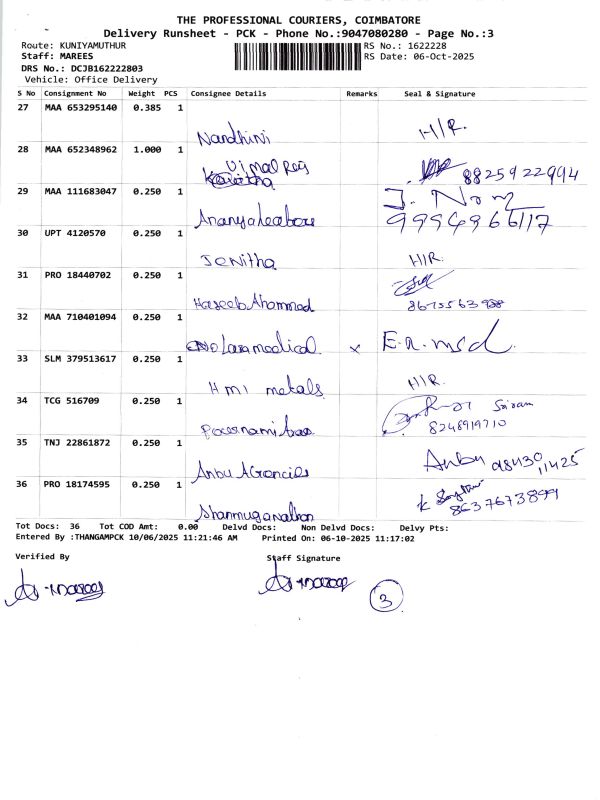 THE PROFESSIONAL COURIERS, COIMBATORE
Delivery Runsheet - PCK - Phone No.:9047080280 - Page No.:3
Route: KUNIYAMUTHUR RS No.: 1622228
Staff: MAREES RS Date: 06-Oct-2025
DRS No.: DCJB162222803
Vehicle: Office Delivery
S No Consignment No Weight PCS Consignee Details Remarks Seal & Signature
27 MAA 653295140 0.385 1
Nandhini H/R.
28 MAA 652348962 1.000 1
Vimal Raj 8825922994
29 MAA 111683047 0.250 1
J.
9994966117
30 UPT 4120570 0.250 1
Jenitha H/R.
31 PRO 18440702 0.250 1
Haseeb Ahammad
32 MAA 710401094 0.250 1
medical x
33 SLM 379513617 0.250 1
HMI metals H/R.
34 TCG 516709 0.250 1
Sriram
8248919710
35 TNJ 22861872 0.250 1
Anbu Agencies Anbu
36 PRO 18174595 0.250 1
8637673899
Shanmuganathan
Tot Docs: 36 Tot COD Amt: 0.00 Delvd Docs: Non Delvd Docs: Delvy Pts:
Entered By :THANGAMPCK 10/06/2025 11:21:46 AM Printed On: 06-10-2025 11:17:02
Verified By Staff Signature
3